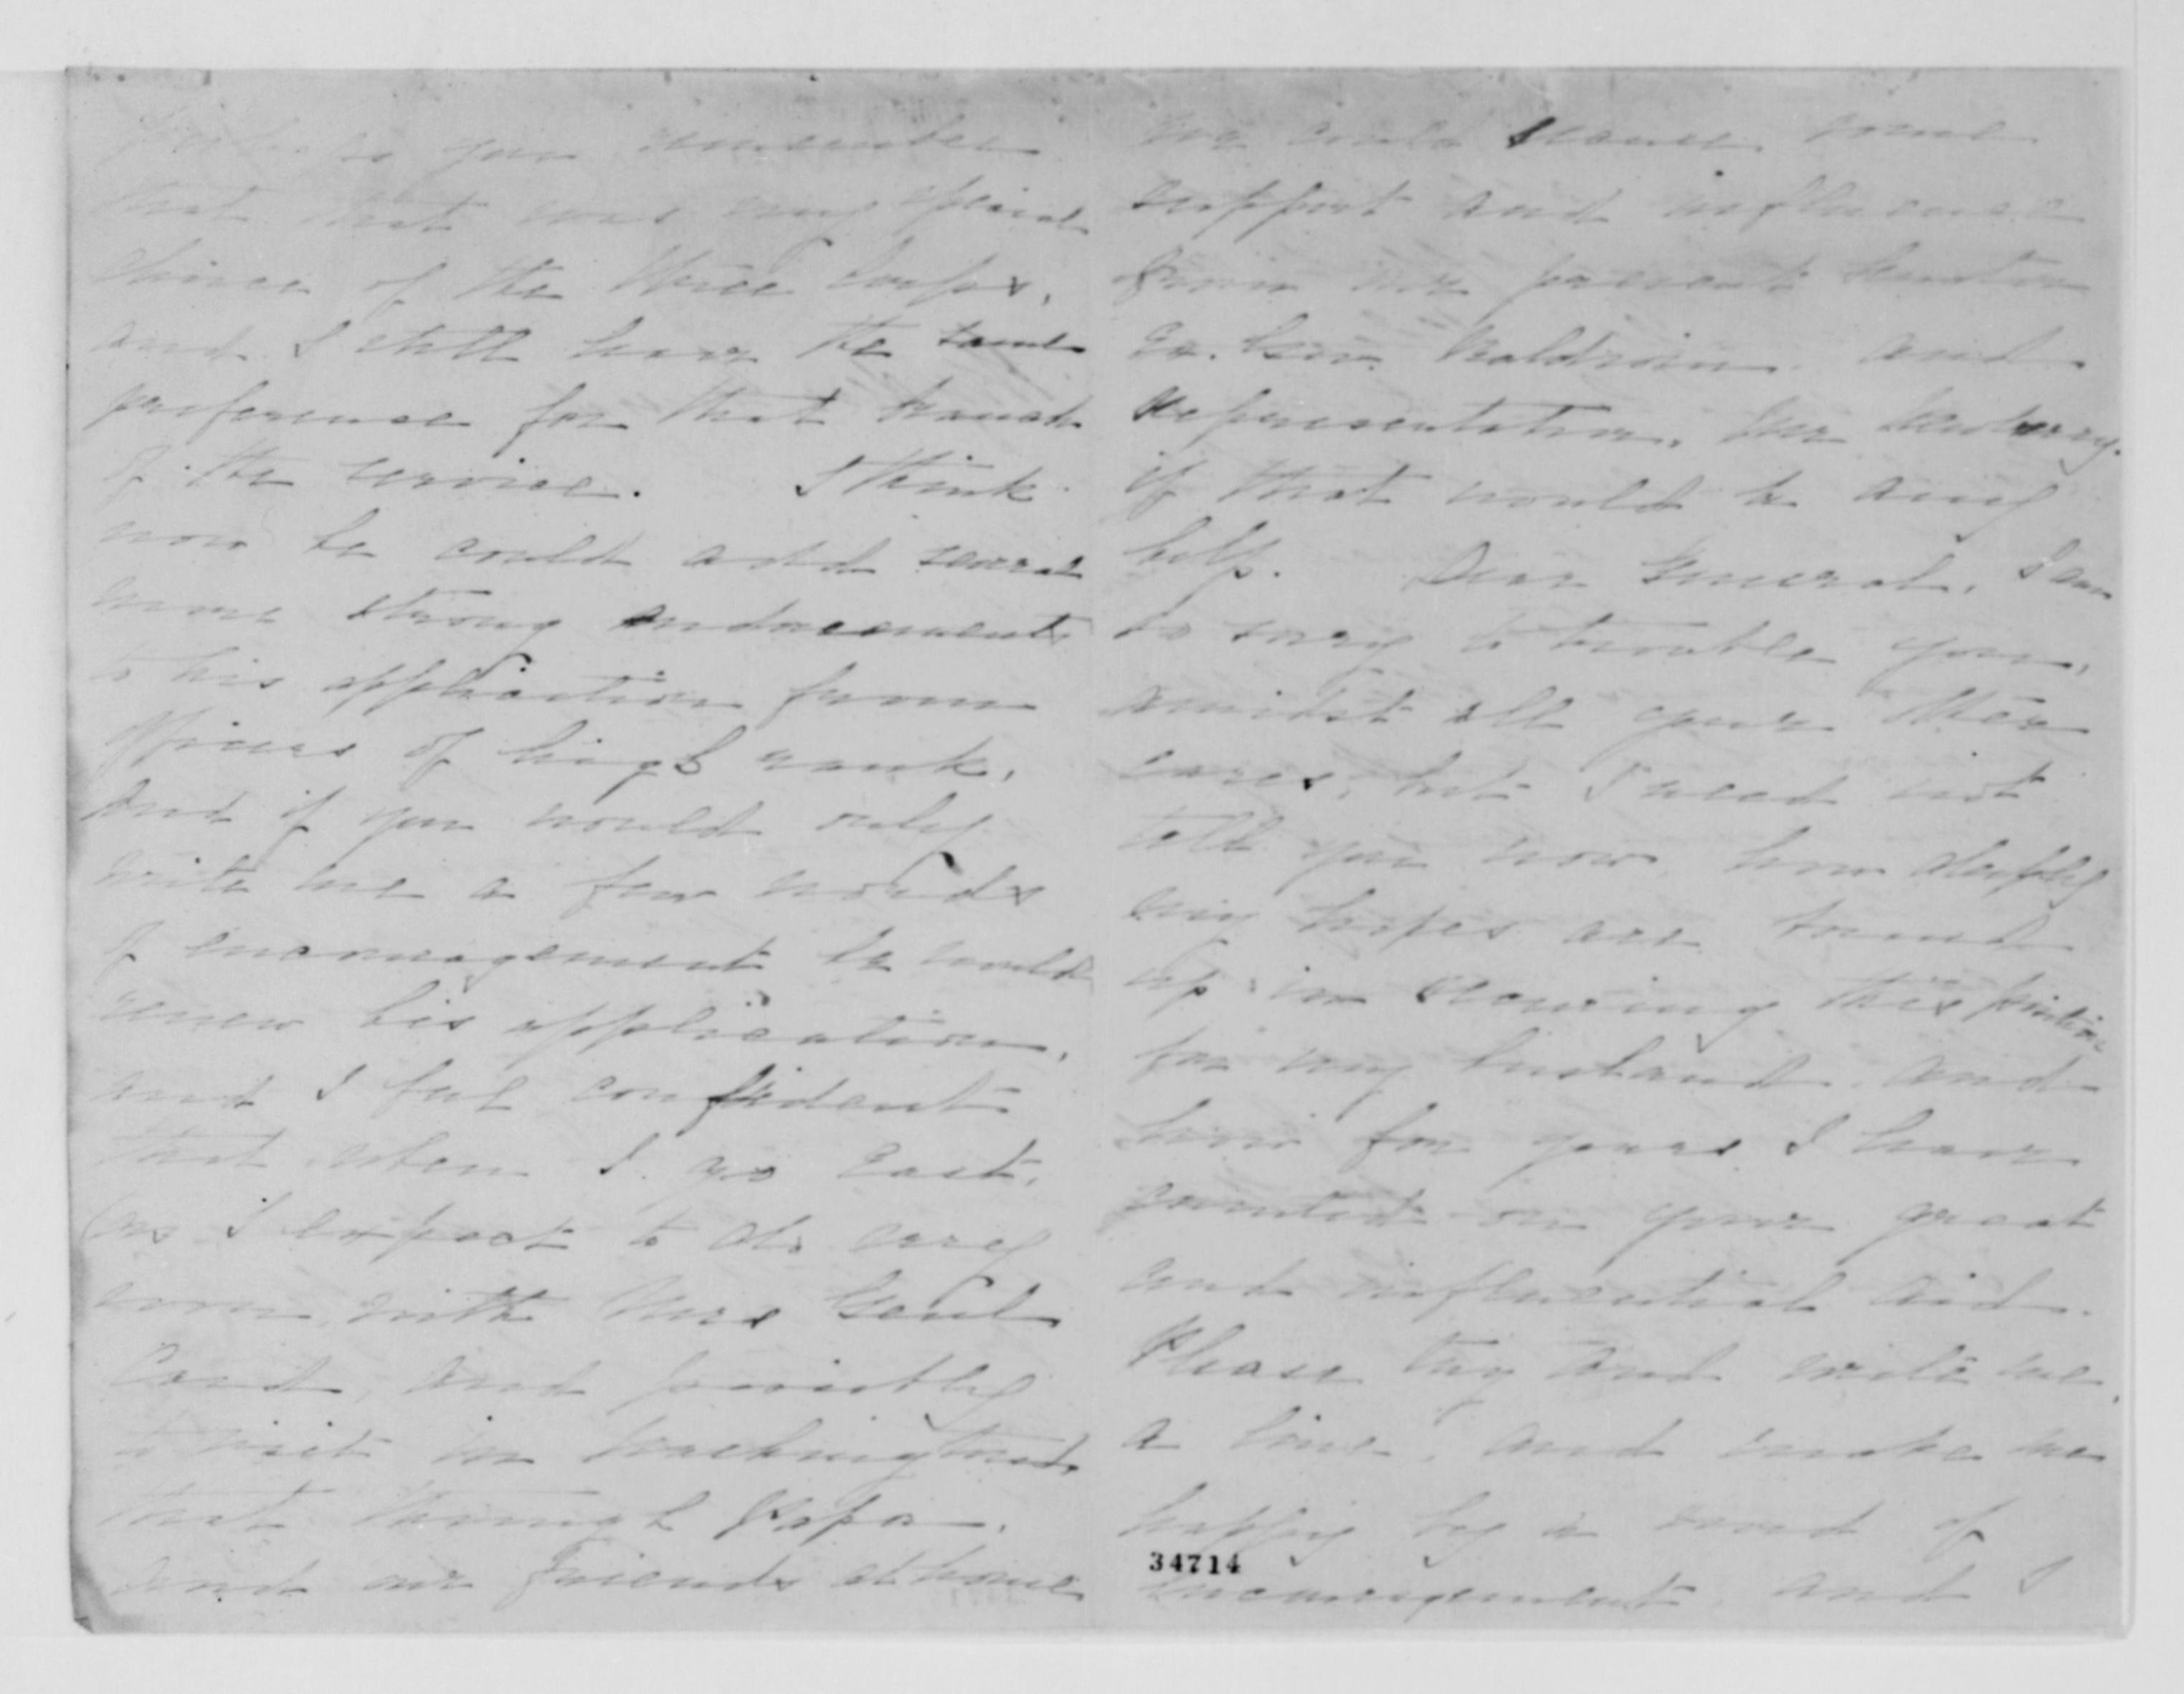 to you remember
that that was my special
choice of the three Corps,
and I still have the same
preference for that branch
of the service. I think
now he could add several
more strong endorsements
to his application from
officers of high rank,
and if you would only
write me a few words
of encouragement he would
renew his application,
and I feel confident
that when I go East,
(as I expect to do very
soon, with Mrs Genl
and possibly
to visit in Washington,)
that through Papa,
and our friends at home
we could secure some
support and influence
from our present Senator
Ex. Gov. Baldwin and
Representative, Mr
if that would be any
help. Dear General, I am
so sorry to trouble you,
amidst all your other
cares, but I need not
tell you now how deeply
my hopes are bound
up in securing this position
for my husband, and
how for years I have
counted on your great
and influential aid.
Please try and write me
a line, and make me
happy by a word of
34714
encouragement, and I